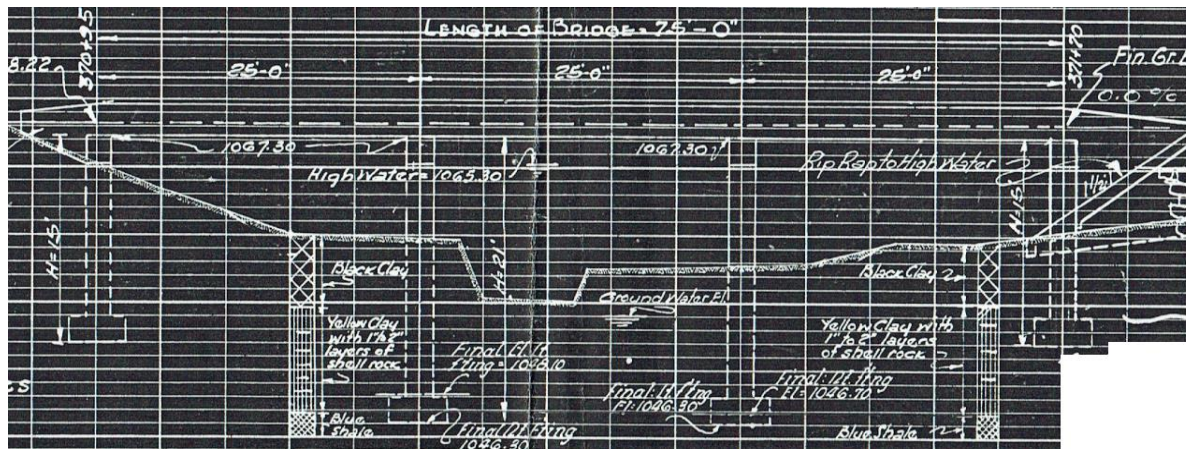 LENGTH OF BRIDGE = 75'-0"
8.22
370+95
25'-0"
25'-0"
25'-0"
371+70
Fin. Gr. L
0.0 %
1067.30
1067.30
High Water = 1065.30
Rip Rap to High Water
1½:1
H=15'
H=21'
H=15'
Black Clay
Black Clay
Ground Water El.
Yellow Clay
with 1"to2"
layers of
shell rock
Yellow Clay with
1" to 2" layers
of shell rock
Final El. Lt.
ftng = 1046.10
Final Lt. ftng
El = 1046.30
Final Rt. ftng
El = 1046.70
Blue
Shale
Final Rt Ftng
1046.30
Blue Shale